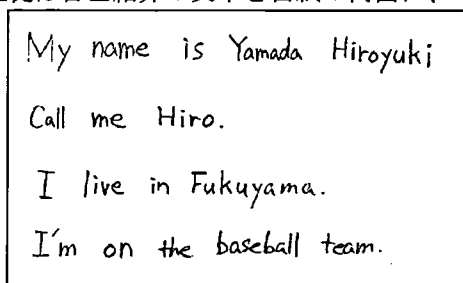 My name is Yamada Hiroyuki
Call me Hiro.
I live in Fukuyama.
I'm on the baseball team.